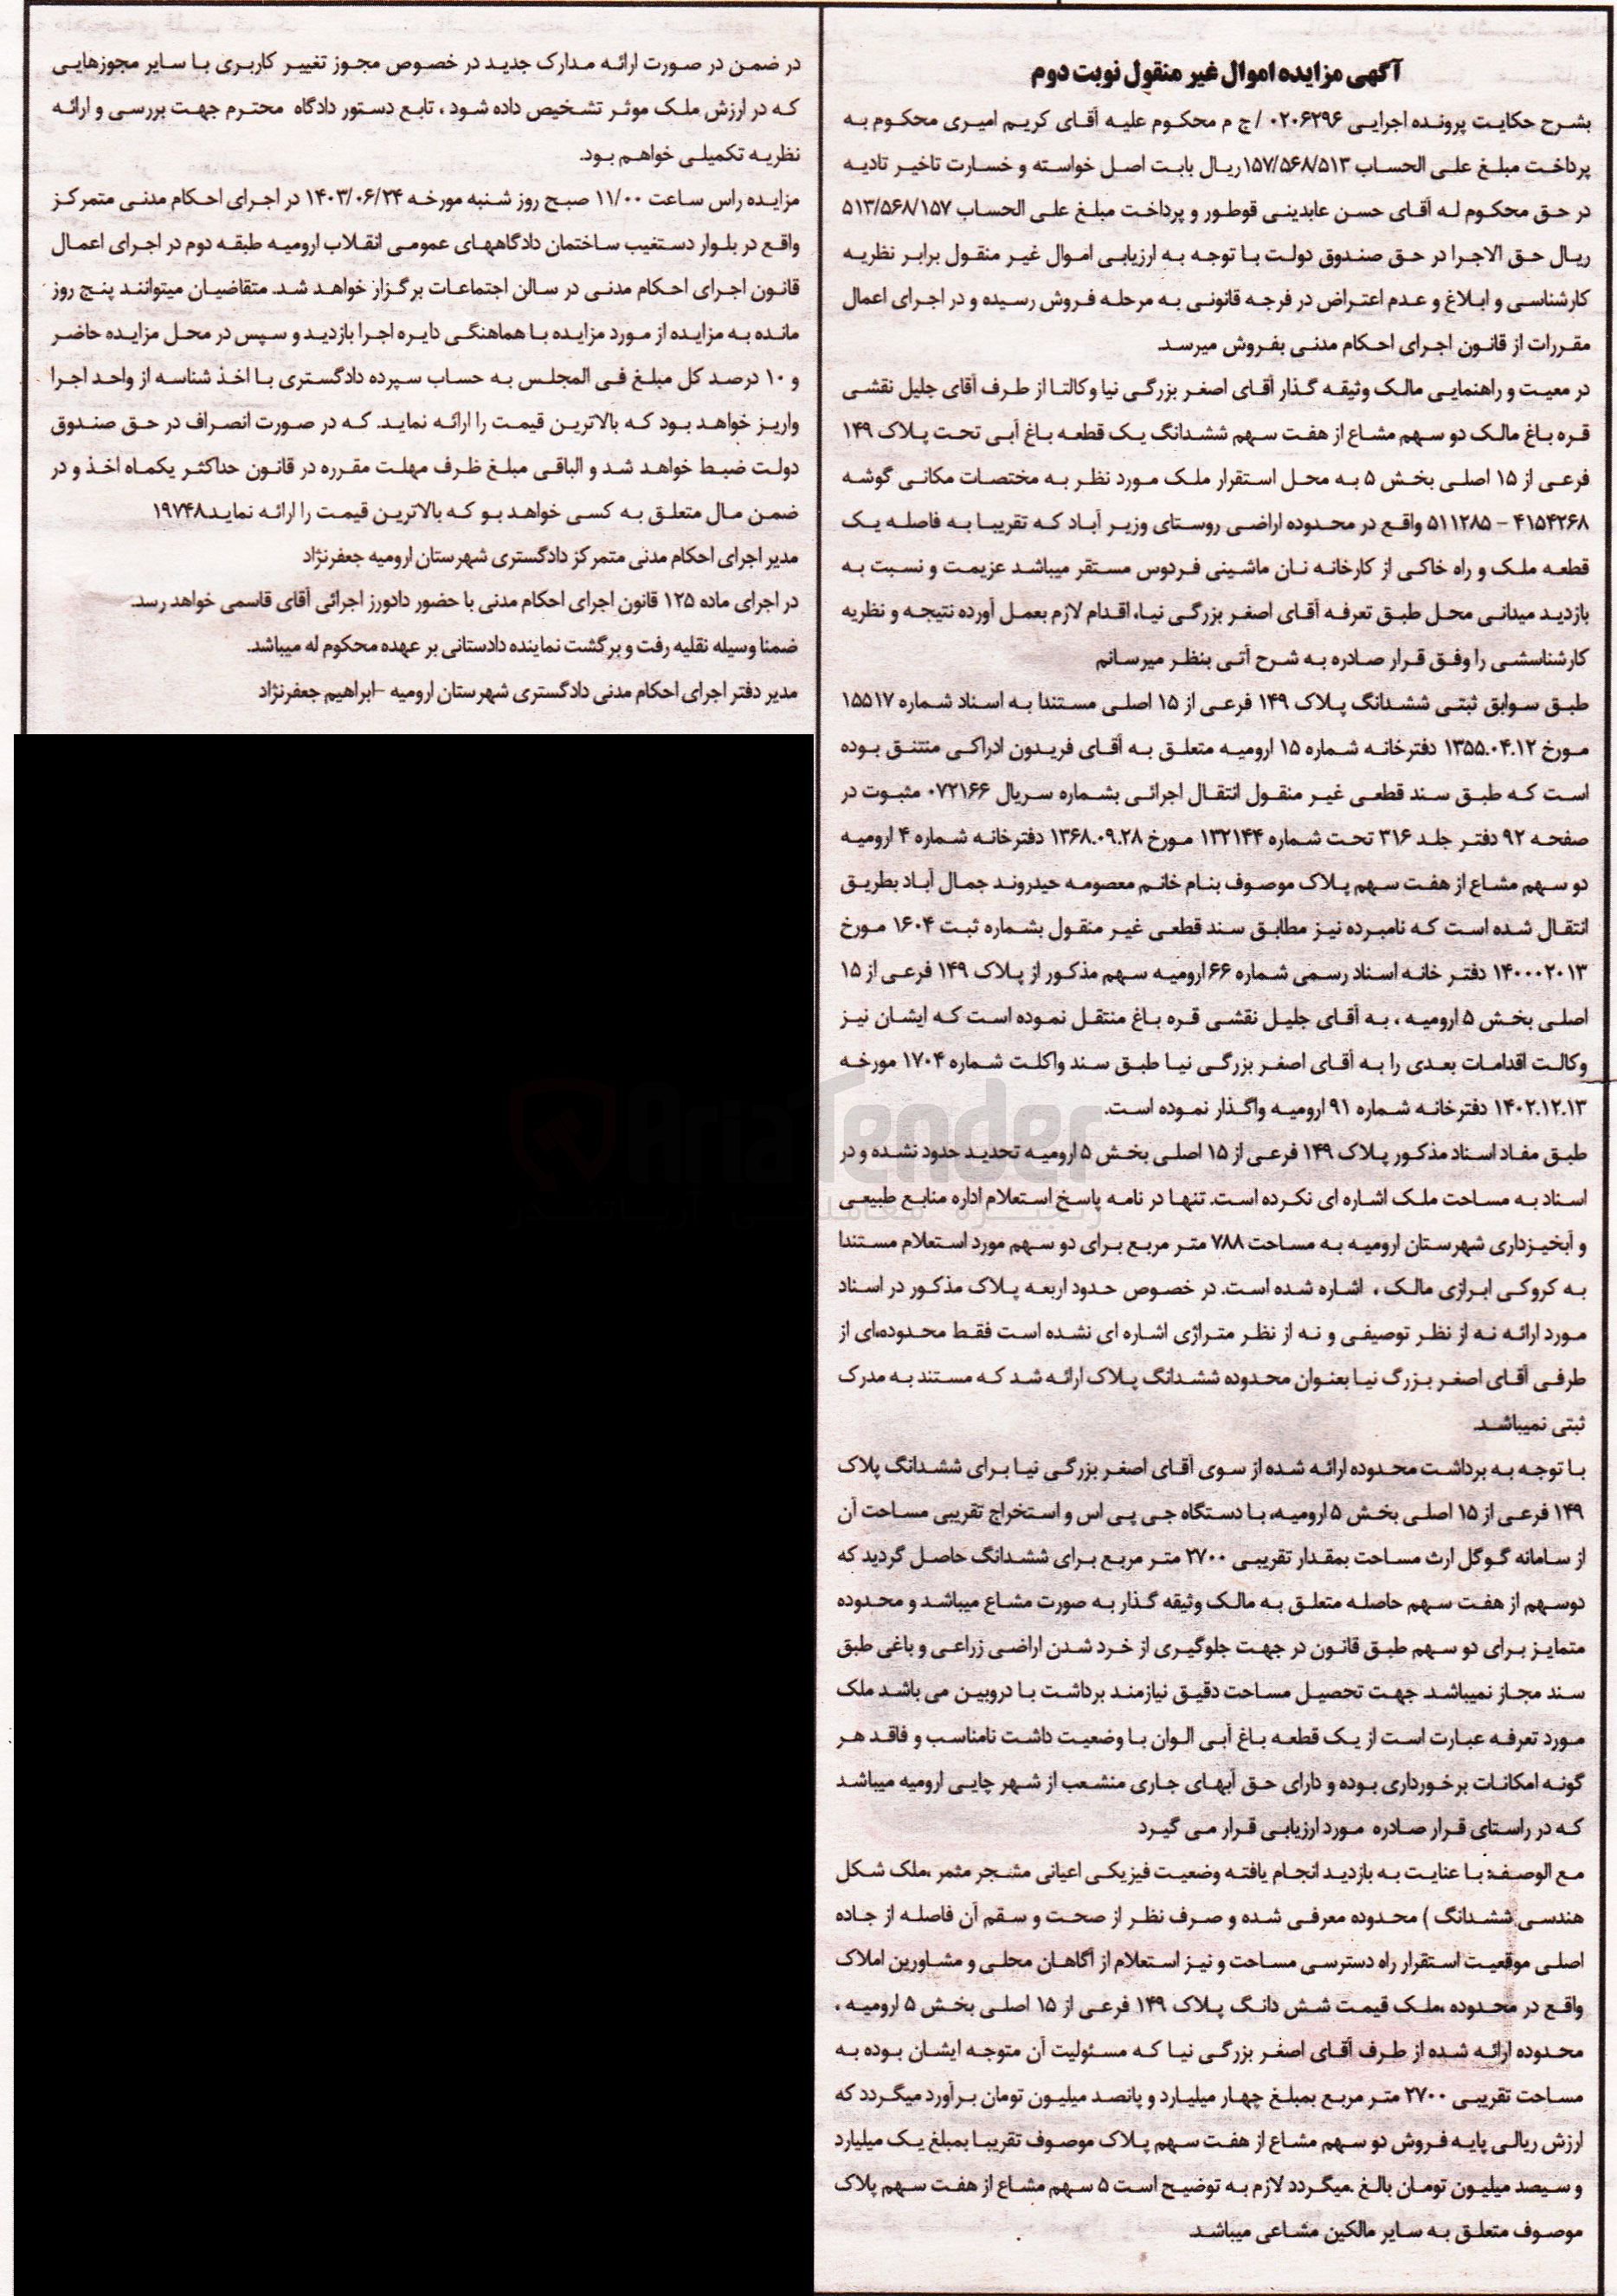 آگهی مزایده اموال غیر منقول نوبت دوم
بشرح حکایت پرونده اجرایی ۰۲۰۶۲۹۶ / ج م محکوم علیه آقای کریم امیری محکوم به
پرداخت مبلغ علی الحساب ۱۵۷/۵۶۸/۵۱۳ریال بابت اصل خواسته و خسارت تاخیر تادیه
در حق محکوم له آقای حسن عابدینی قوطور و پرداخت مبلغ علی الحساب ۵۱۳/۵۶۸/۱۵۷
ریال حق الاجرا در حق صندوق دولت با توجه به ارزیابی اموال غیر منقول برابر نظریه
کارشناسی و ابلاغ و عدم اعتراض در فرجه قانونی به مرحله فروش رسیده و در اجرای اعمال
مقررات از قانون اجرای احکام مدنی بفروش میرسد.
در معیت و راهنمایی مالک وثیقه گذار آقای اصغر بزرگی نیا وکالتا از طرف آقای جلیل نقشی
قره باغ مالک دو سهم مشاع از هفت سهم ششدانگ یک قطعه باغ آبی تحت پلاک ۱۴۹
فرعی از ۱۵ اصلی بخش ۵ به محل استقرار ملک مورد نظر به مختصات مکانی گوشه
۴۱۵۴۲۶۸ – ۵۱۱۲۸۵ واقع در محدوده اراضی روستای وزیر آباد که تقریبا به فاصله یک
قطعه ملک و راه خاکی از کارخانه نان ماشینی فردوس مستقر میباشد عزیمت و نسبت به
بازدید میدانی محل طبق تعرفه آقای اصغر بزرگی نیا، اقدام لازم بعمل آورده نتیجه و نظریه
کارشناسشی را وفق قرار صادره به شرح آتی بنظر میرسانم
طبق سوابق ثبتی ششدانگ پلاک ۱۴۹ فرعی از ۱۵ اصلی مستندا به اسناد شماره ۱۵۵۱۷
مورخ ۱۳۵۵.۰۴.۱۲ دفترخانه شماره ۱۵ ارومیه متعلق به آقای فریدون ادراکی منتنق بوده
است که طبق سند قطعی غیر منقول انتقال اجرائی بشماره سریال ۰۷۲۱۶۶ مثبوت در
صفحه ۹۲ دفتر جلد ۳۱۶ تحت شماره ۱۳۲۱۴۴ مورخ ۱۳۶۸.۰۹.۲۸ دفترخانه شماره ۴ ارومیه
دو سهم مشاع از هفت سهم پلاک موصوف بنام خانم معصومه حیدروند جمال آباد بطریق
انتقال شده است که نامبرده نیز مطابق سند قطعی غیر منقول بشماره ثبت ۱۶۰۴ مورخ
۱۴۰۰۰۲۰۱۳ دفتر خانه اسناد رسمی شماره ۶۶ ارومیه سهم مذکور از پلاک ۱۴۹ فرعی از ۱۵
اصلی بخش ۵ ارومیه ، به آقای جلیل نقشی قره باغ منتقل نموده است که ایشان نیز
وکالت اقدامات بعدی را به آقای اصغر بزرگی نیا طبق سند واکلت شماره ۱۷۰۴ مورخه
۱۴۰۲.۱۲.۱۳ دفترخانه شماره ۹۱ ارومیه واگذار نموده است.
طبق مفاد اسناد مذکور پلاک ۱۴۹ فرعی از ۱۵ اصلی بخش ۵ ارومیه تحدید حدود نشده و در
اسناد به مساحت ملک اشاره ای نکرده است. تنها در نامه پاسخ استعلام اداره منابع طبیعی
و آبخیزداری شهرستان ارومیه به مساحت ۷۸۸ متر مربع برای دو سهم مورد استعلام مستندا
به کروکی ابرازی مالک ، اشاره شده است. در خصوص حدود اربعه پلاک مذکور در اسناد
مورد ارائه نه از نظر توصیفی و نه از نظر متراژی اشاره ای نشده است فقط محدوده‌ای از
طرفی آقای اصغر بزرگ نیا بعنوان محدوده ششدانگ پلاک ارائه شد که مستند به مدرک
ثبتی نمیباشد.
با توجه به برداشت محدوده ارائه شده از سوی آقای اصغر بزرگی نیا برای ششدانگ پلاک
۱۴۹ فرعی از ۱۵ اصلی بخش ۵ ارومیه، با دستگاه جی پی اس و استخراج تقریبی مساحت آن
از سامانه گوگل ارث مساحت بمقدار تقریبی ۲۷۰۰ متر مربع برای ششدانگ حاصل گردید که
دوسهم از هفت سهم حاصله متعلق به مالک وثیقه گذار به صورت مشاع میباشد و محدوده
متمایز برای دو سهم طبق قانون در جهت جلوگیری از خرد شدن اراضی زراعی و باغی طبق
سند مجاز نمیباشد. جهت تحصیل مساحت دقیق نیازمند برداشت با دروبین می باشد ملک
مورد تعرفه عبارت است از یک قطعه باغ آبی الوان با وضعیت داشت نامناسب و فاقد هر
گونه امکانات برخورداری بوده و دارای حق آبهای جاری منشعب از شهر چایی ارومیه میباشد
که در راستای قرار صادره مورد ارزیابی قرار می گیرد
مع الوصف: با عنایت به بازدید انجام یافته وضعیت فیزیکی اعیانی مشجر مثمر ،ملک شکل
هندسی ششدانگ ) محدوده معرفی شده و صرف نظر از صحت و سقم آن فاصله از جاده
اصلی موقعیت استقرار راه دسترسی مساحت و نیز استعلام از آگاهان محلی و مشاورین املاک
واقع در محدوده ،ملک قیمت شش دانگ پلاک ۱۴۹ فرعی از ۱۵ اصلی بخش ۵ ارومیه ،
محدوده ارائه شده از طرف آقای اصغر بزرگی نیا که مسئولیت آن متوجه ایشان بوده به
مساحت تقریبی ۲۷۰۰ متر مربع بمبلغ چهار میلیارد و پانصد میلیون تومان برآورد میگردد که
ارزش ریالی پایه فروش دو سهم مشاع از هفت سهم پلاک موصوف تقریبا بمبلغ یک میلیارد
و سیصد میلیون تومان بالغ .میگردد لازم به توضیح است ۵ سهم مشاع از هفت سهم پلاک
موصوف متعلق به سایر مالکین مشاعی میباشد.
در ضمن در صورت ارائه مدارک جدید در خصوص مجوز تغییر کاربری با سایر مجوزهایی
که در ارزش ملک موثر تشخیص داده شود ، تابع دستور دادگاه محترم جهت بررسی و ارائه
نظریه تکمیلی خواهم بود.
مزایده راس ساعت ۱۱/۰۰ صبح روز شنبه مورخه ۱۴۰۳/۰۶/۲۴ در اجرای احکام مدنی متمرکز
واقع در بلوار دستغیب ساختمان دادگاههای عمومی انقلاب ارومیه طبقه دوم در اجرای اعمال
قانون اجرای احکام مدنی در سالن اجتماعات برگزار خواهد شد. متقاضیان میتوانند پنج روز
مانده به مزایده از مورد مزایده با هماهنگی دایره اجرا بازدید و سپس در محل مزایده حاضر
و ۱۰ درصد کل مبلغ فی المجلس به حساب سپرده دادگستری با اخذ شناسه از واحد اجرا
واریز خواهد بود که بالاترین قیمت را ارائه نماید. که در صورت انصراف در حق صندوق
دولت ضبط خواهد شد و الباقی مبلغ ظرف مهلت مقرره در قانون حداکثر یکماه اخذ و در
ضمن مال متعلق به کسی خواهد بو که بالاترین قیمت را ارائه نماید۱۹۷۴۸
مدیر اجرای احکام مدنی متمرکز دادگستری شهرستان ارومیه جعفرنژاد
در اجرای ماده ۱۲۵ قانون اجرای احکام مدنی با حضور دادورز اجرائی آقای قاسمی خواهد رسد.
ضمنا وسیله نقلیه رفت و برگشت نماینده دادستانی بر عهده محکوم له میباشد.
مدیر دفتر اجرای احکام مدنی دادگستری شهرستان ارومیه –ابراهیم جعفرنژاد
AriaTender